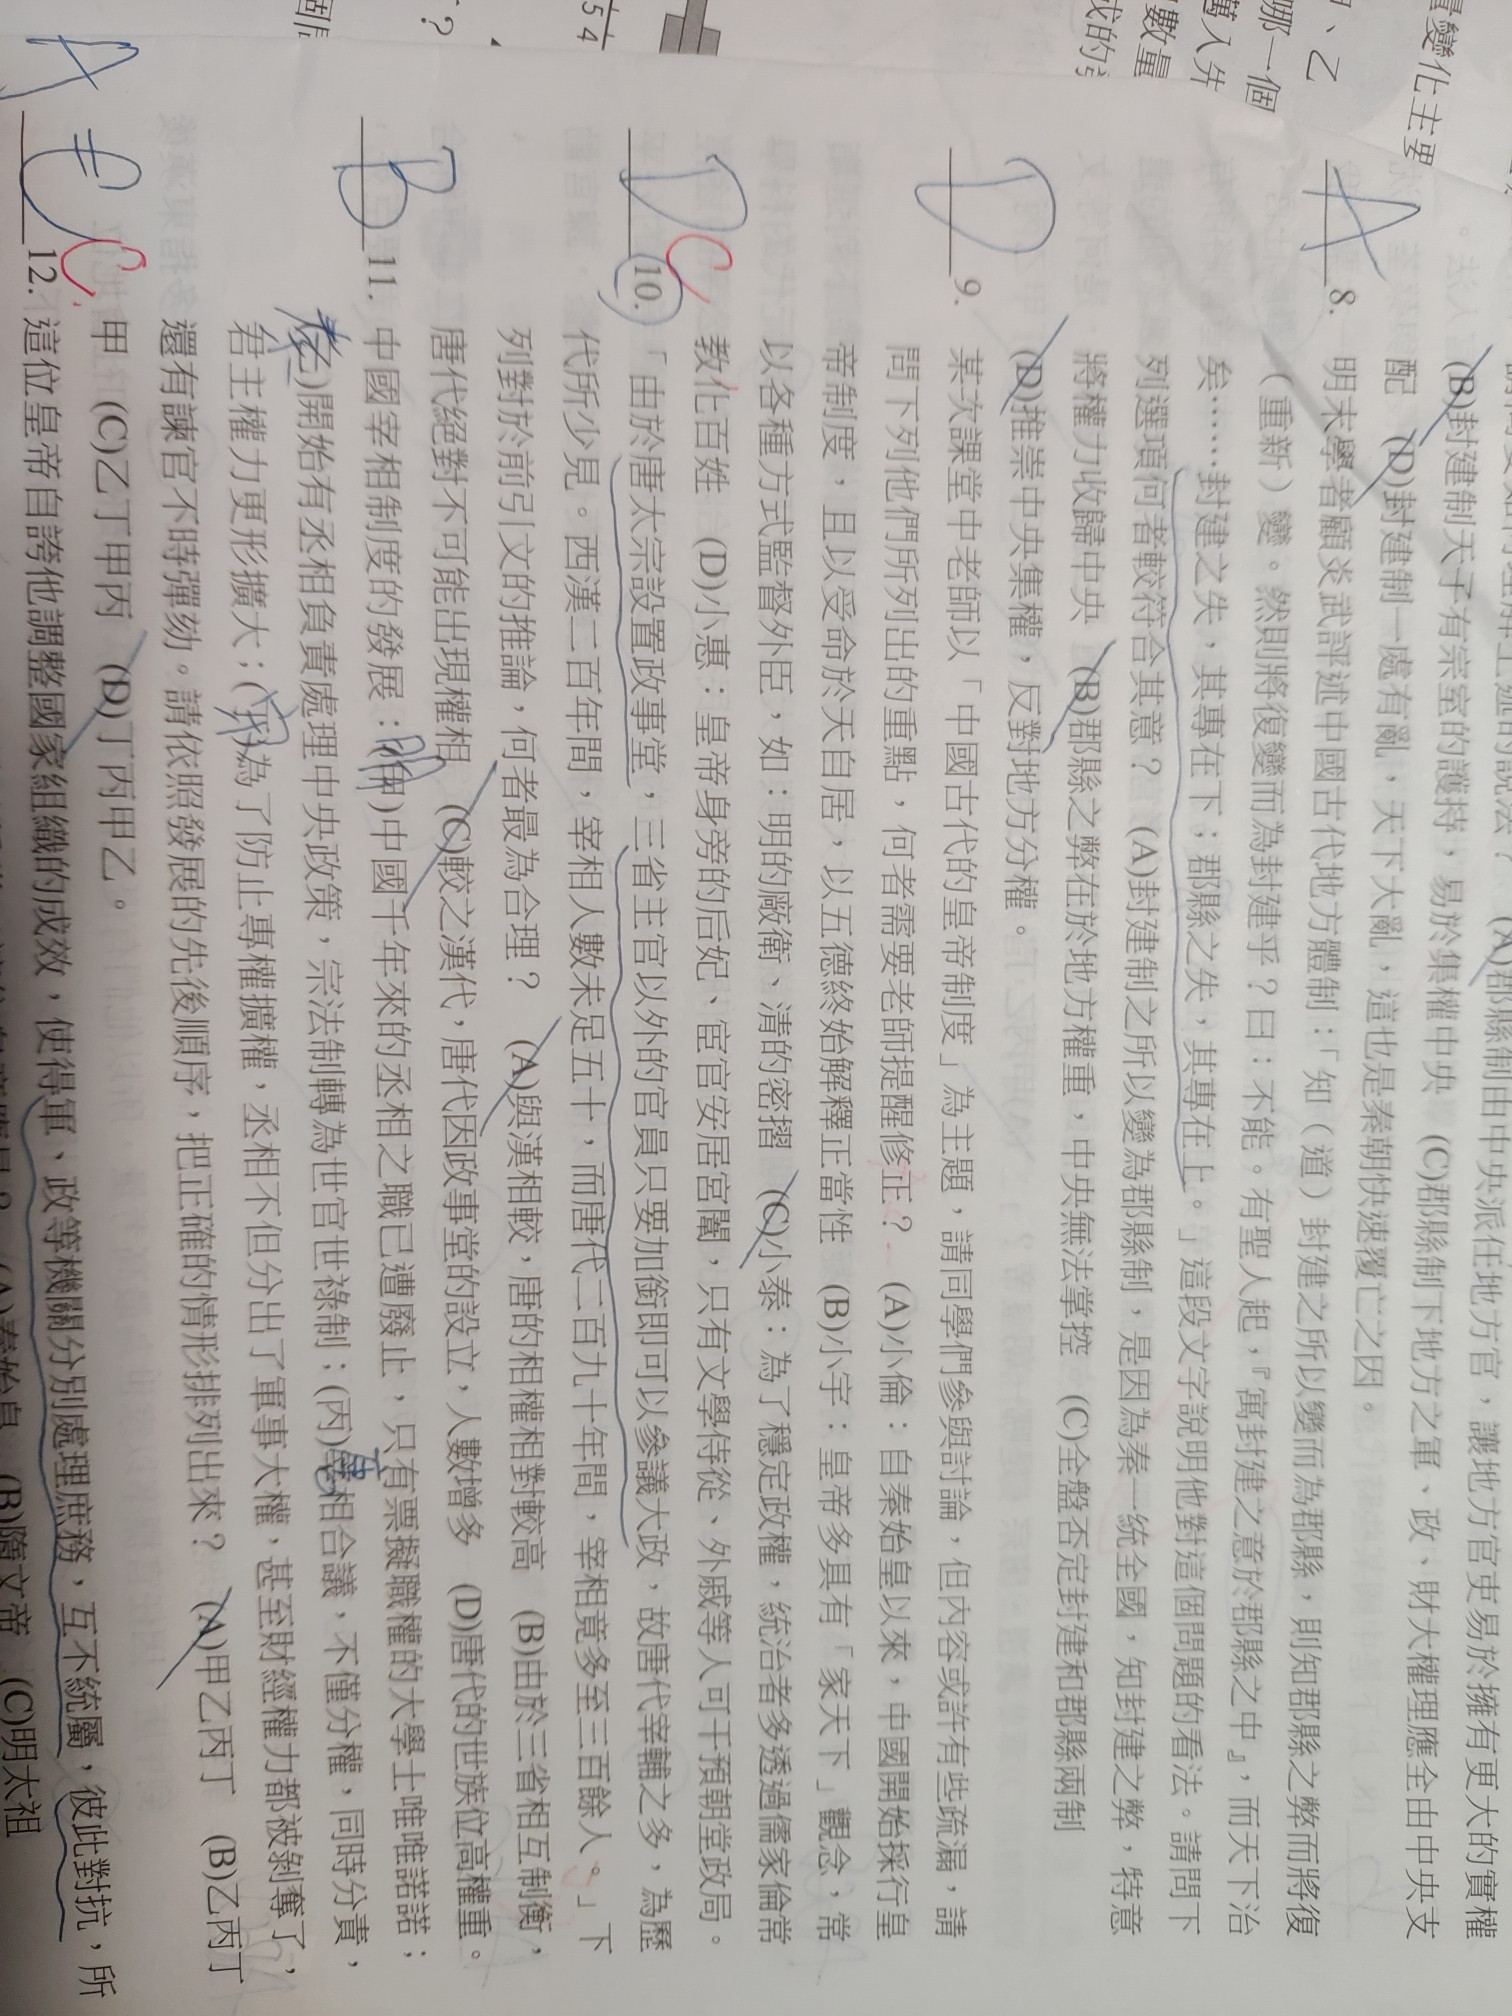 量變化主要
、乙
哪一個
萬入弁
數量
成的
(A)郡縣制由中央派任地方官，讓地方官吏易於擁有更大的實權
(B)封建制天子有宗室的護持，易於集權中央 (C)郡縣制下地方之軍、政、財大權理應全由中央支
配 (D)封建制一處有亂，天下大亂，這也是秦朝快速覆亡之因。
A 8. 明末學者顧炎武評述中國古代地方體制：「知（道）封建之所以變而為郡縣，則知郡縣之弊而將復
（重新）變。然則將復變而為封建乎？曰：不能。有聖人起，『寓封建之意於郡縣之中』，而天下治
矣……封建之失，其專在下；郡縣之失，其專在上。」這段文字說明他對這個問題的看法。請問下
列選項何者較符合其意？ (A)封建制之所以變為郡縣制，是因為秦一統全國，知封建之弊，特意
將權力收歸中央 (B)郡縣之弊在於地方權重，中央無法掌控 (C)全盤否定封建和郡縣兩制
(D)推崇中央集權，反對地方分權。
D 9. 某次課堂中老師以「中國古代的皇帝制度」為主題，請同學們參與討論，但內容或許有些疏漏，請
問下列他們所列出的重點，何者需要老師提醒修正？ (A)小倫：自秦始皇以來，中國開始採行皇
帝制度，且以受命於天自居，以五德終始解釋正當性 (B)小宇：皇帝多具有「家天下」觀念，常
以各種方式監督外臣，如：明的廠衛、清的密摺 (C)小泰：為了穩定政權，統治者多透過儒家倫常
教化百姓 (D)小惠：皇帝身旁的后妃、宦官安居宮闈，只有文學侍從、外戚等人可干預朝堂政局。
D C 10. 「由於唐太宗設置政事堂，三省主官以外的官員只要加銜即可以參議大政，故唐代宰輔之多，為歷
代所少見。西漢二百年間，宰相人數未足五十，而唐代二百九十年間，宰相竟多至三百餘人。」下
列對於前引文的推論，何者最為合理？ (A)與漢相較，唐的相權相對較高 (B)由於三省相互制衡，
唐代絕對不可能出現權相 (C)較之漢代，唐代因政事堂的設立，人數增多 (D)唐代的世族位高權重。
B 11. 中國宰相制度的發展：(甲)中國千年來的丞相之職已遭廢止，只有票擬職權的大學士唯唯諾諾；
(乙)開始有丞相負責處理中央政策，宗法制轉為世官世祿制；(丙)相合議，不僅分權，同時分責，
君主權力更形擴大；(丁)為了防止專權擴權，丞相不但分出了軍事大權，甚至財經權力都被剝奪了，
還有諫官不時彈劾。請依照發展的先後順序，把正確的情形排列出來？ (A)甲乙丙丁 (B)乙丙丁
甲 (C)乙丁甲丙 (D)丁丙甲乙。
A C C 12. 這位皇帝自誇他調整國家組織的成效，使得軍、政等機關分別處理庶務，互不統屬，彼此對抗，所
(A)秦始皇 (B)隋文帝 (C)明太祖